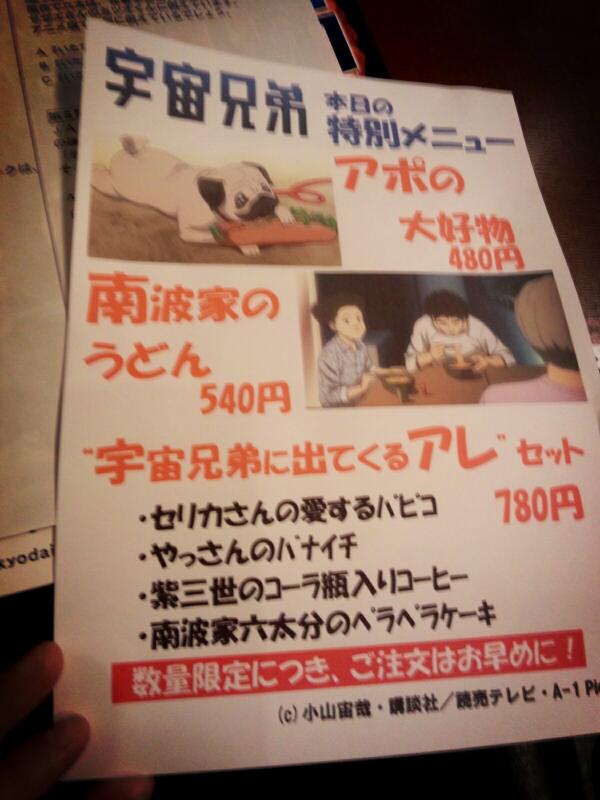 宇宙兄弟 本日の
特別メニュー
アポの
大好物
480円
南波家の
うどん
540円
"宇宙兄弟に出てくるアレ"セット
780円
・セリカさんの愛するパピコ
・やっさんのバナイチ
・紫三世のコーラ瓶入りコーヒー
・南波家六太分のペラペラケーキ
数量限定につき、ご注文はお早めに！
(c)小山宙哉・講談社／読売テレビ・A-1 Pi
kyodai